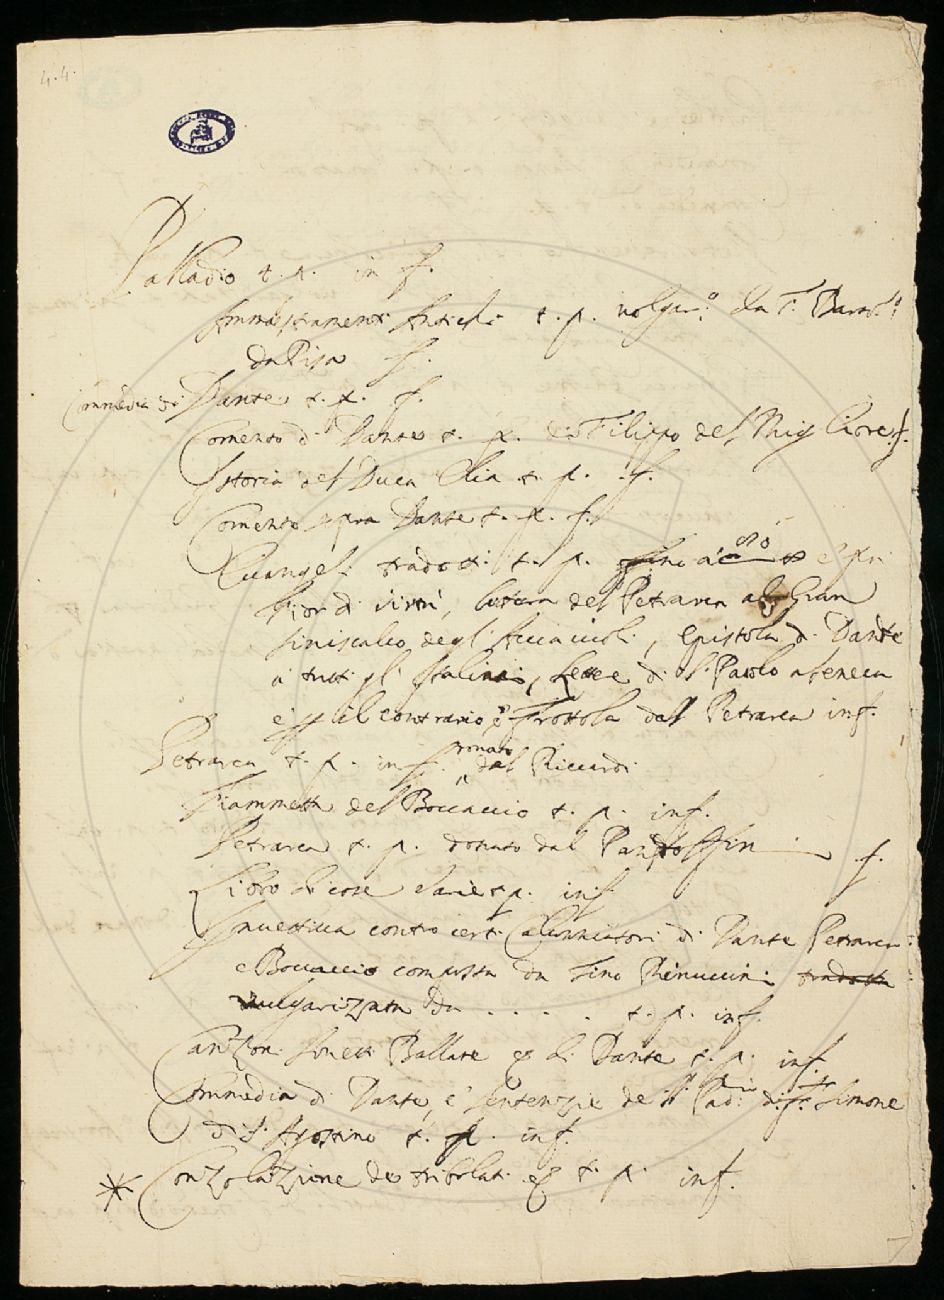 4.4.
Palladio t. p. in f.
Ammaestramenti Antichi t. p. volgar.o da F. Bartol.o
da Pisa f.
Commedia di Dante t. p. f.
Comento di Dante t. p. di Filippo del Migliore f.
Istoria del Duca Elia t. p. f.
Comento sopra Dante t. p. f.
Euangeli tradotti t. p. e
Fior di virtù, lettera del Petrarca al Gran
Siniscalco degl' Acciaiuoli, Epistola di Dante
a tutti gl' Italiani, di S. Paolo a Seneca
e il contrario, e Frottola del Petrarca inf.
Petrarca t. p. in f. donato dal Riccardi
Fiammetta del Boccaccio t. p. inf.
Petrarca t. p. donato dal Pandolfini f.
Libro di cose varie t. p. inf
Inuettiua contro certi Calunniatori di Dante Petrarca
e Boccaccio composta da Cino Rinuccini tradotta
vulgarizzata da . . . . t. p. inf.
Canzoni Sonetti Ballate &c di Dante t. p. inf.
Commedia di Dante, e Sentenzie de S.ti Padri di f. Simone
di S. Agostino t. p. inf.
* Conzolazione de tribolati &c t. p. inf.